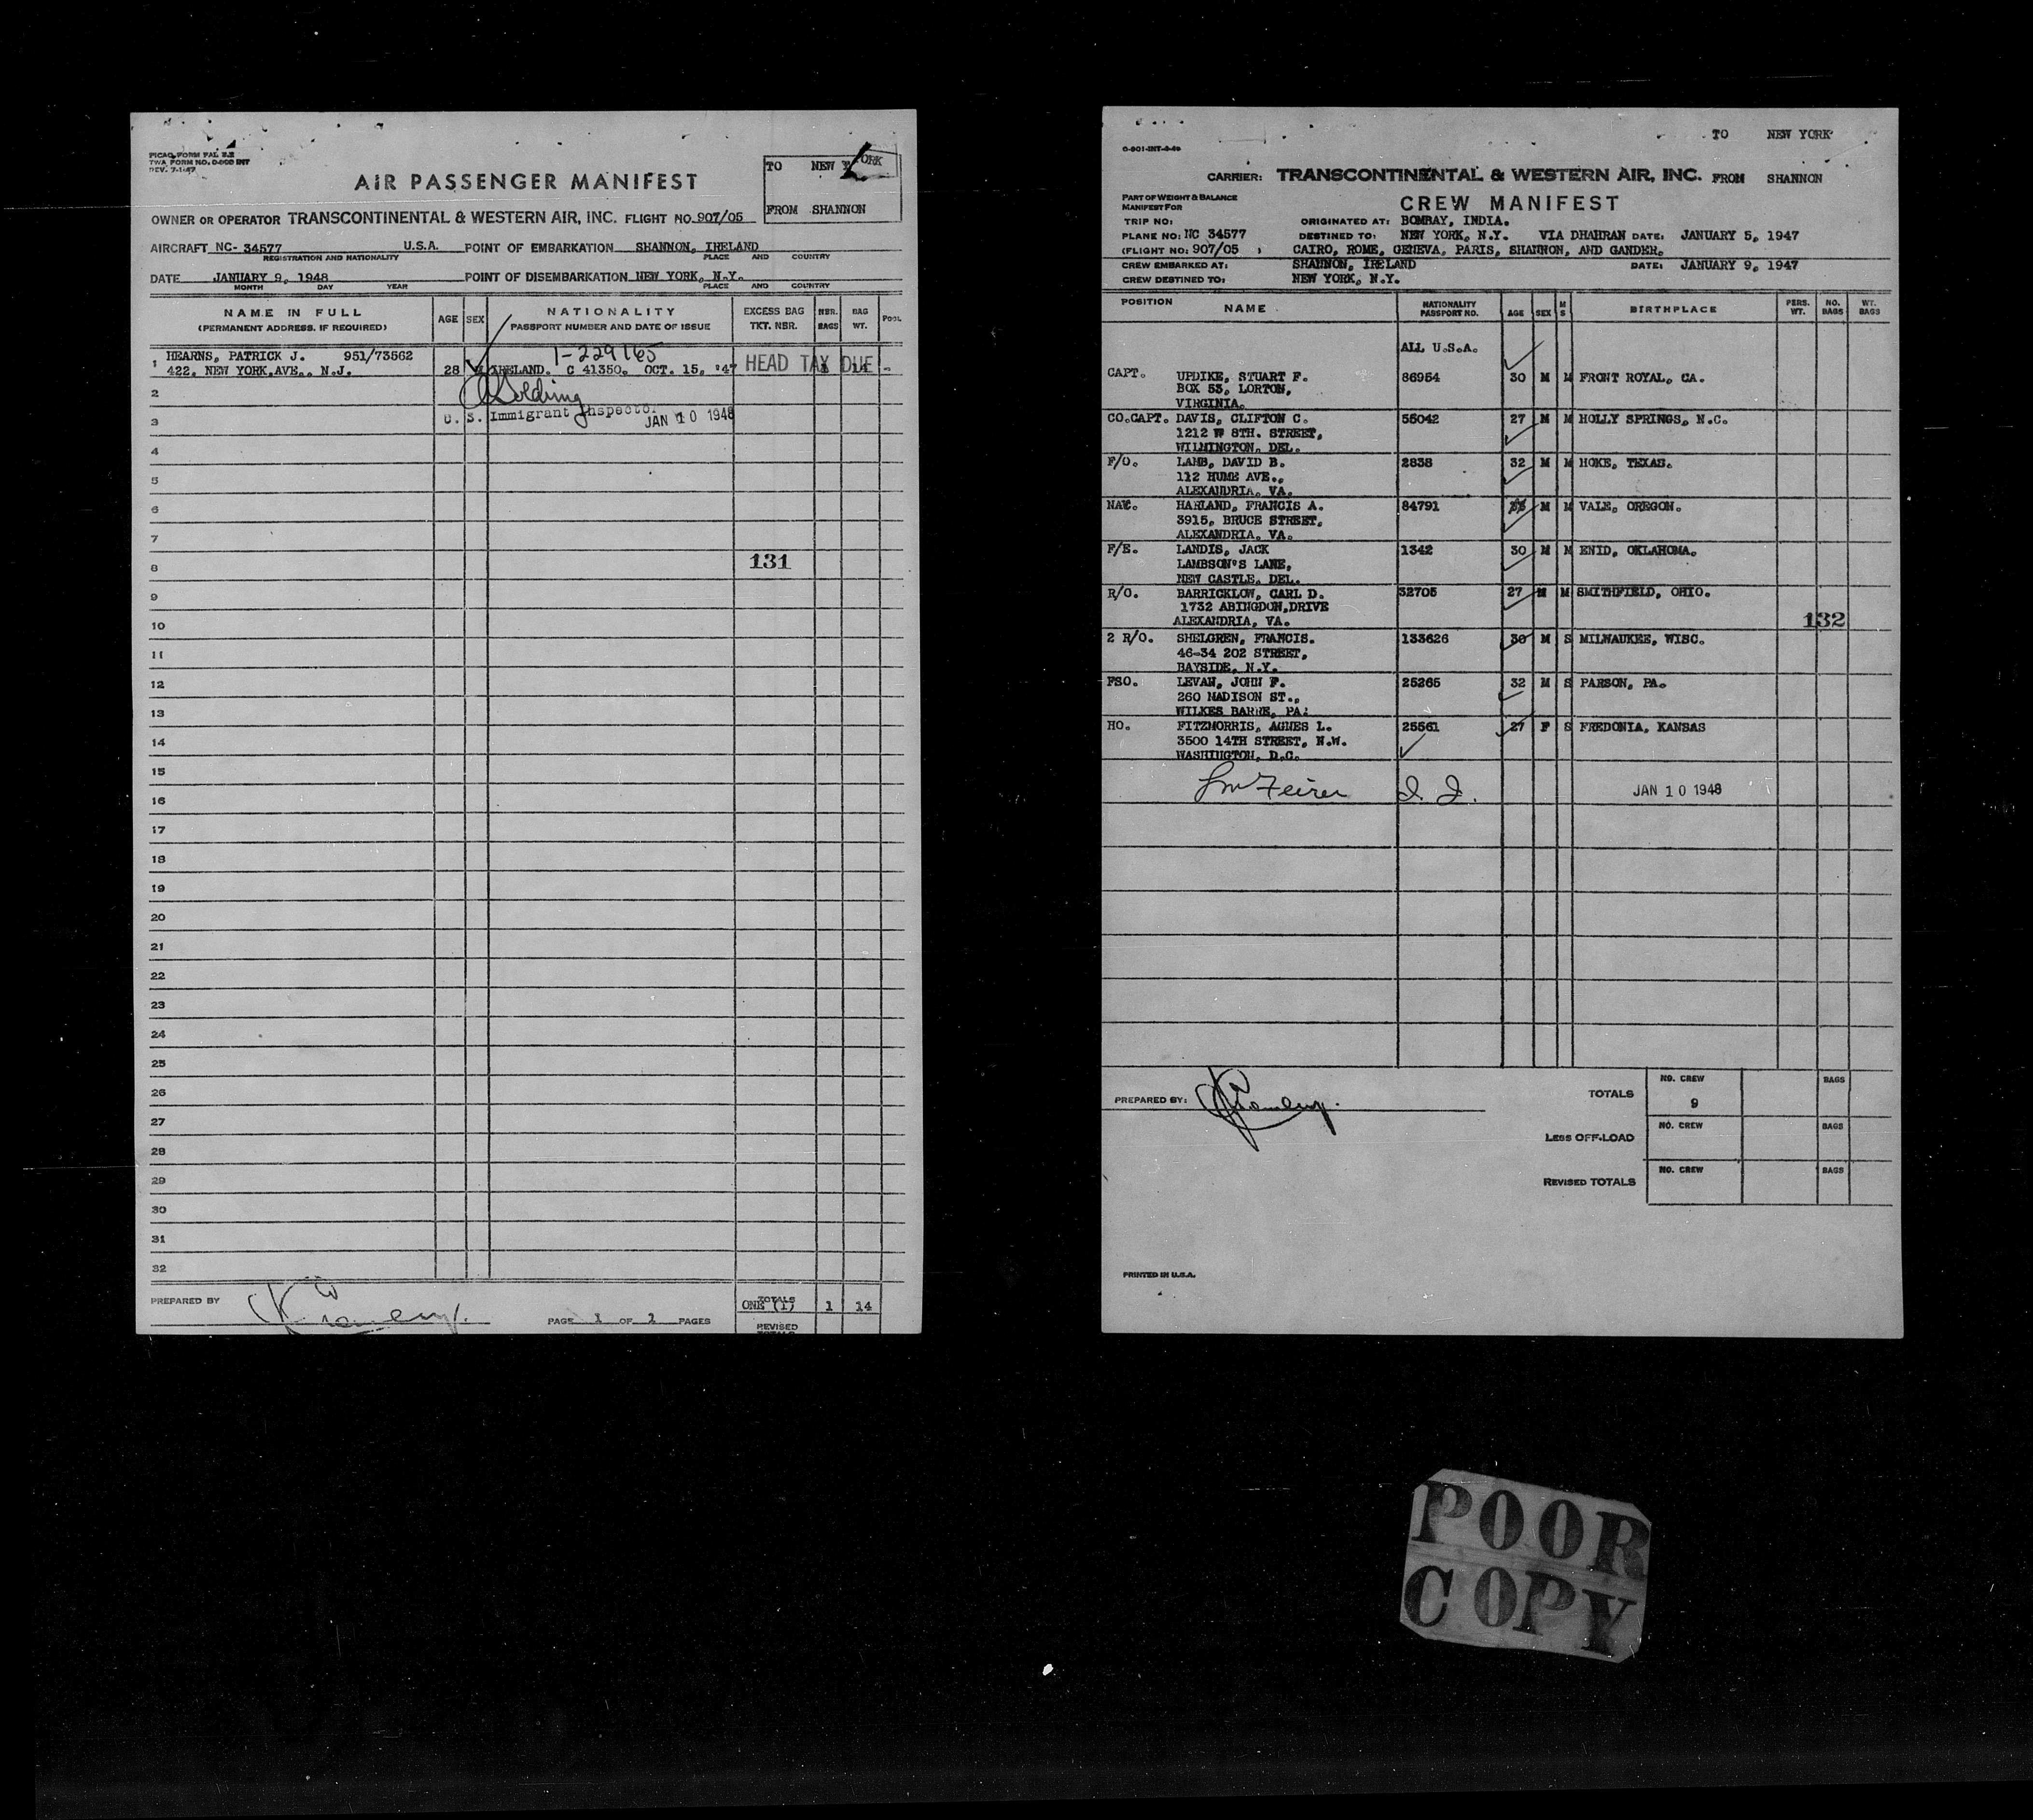 PICAO FORM FAL 2.2
TWA FORM NO. 0-900 INT
REV. 7-1-47
TO NEW YORK
FROM SHANNON
AIR PASSENGER MANIFEST
OWNER OR OPERATOR TRANSCONTINENTAL & WESTERN AIR, INC. FLIGHT NO. 907/05
AIRCRAFT NC- 34577 U.S.A. POINT OF EMBARKATION SHANNON, IRELAND
REGISTRATION AND NATIONALITY PLACE AND COUNTRY
DATE JANUARY 9, 1948 POINT OF DISEMBARKATION NEW YORK, N.Y.
MONTH DAY YEAR PLACE AND COUNTRY
NAME IN FULL AGE SEX NATIONALITY EXCESS BAG NBR. BAG POOL
(PERMANENT ADDRESS, IF REQUIRED) PASSPORT NUMBER AND DATE OF ISSUE TKT. NBR. BAGS WT.
1-229165
1 HEARNS, PATRICK J. 951/73562 HEAD TAX DUE
422, NEW YORK,AVE., N.J. 28 IRELAND. C 41350, OCT. 15, '47 14
2 Golding
3 U. S. Immigrant Inspector JAN 10 1948
4
5
6
7
8 131
9
10
11
12
13
14
15
16
17
18
19
20
21
22
23
24
25
26
27
28
29
30
31
32
PREPARED BY
TOTALS
ONE (1) 1 14
PAGE 1 OF PAGES
REVISED
TOTALS
TO NEW YORK
CARRIER: TRANSCONTINENTAL & WESTERN AIR, INC. FROM SHANNON
PART OF WEIGHT & BALANCE
MANIFEST FOR
CREW MANIFEST
TRIP NO: ORIGINATED AT: BOMBAY, INDIA.
PLANE NO: NC 34577 DESTINED TO: NEW YORK, N.Y. VIA DHAHRAN DATE: JANUARY 5, 1947
(FLIGHT NO: 907/05 ) CAIRO, ROME, GENEVA, PARIS, SHANNON, AND GANDER.
CREW EMBARKED AT: SHANNON, IRELAND DATE: JANUARY 9, 1947
CREW DESTINED TO: NEW YORK, N.Y.
POSITION NAME NATIONALITY PASSPORT NO. AGE SEX M S BIRTHPLACE PERS. WT. NO. BAGS WT. BAGS
ALL U.S.A.
CAPT. UPDIKE, STUART F. 86954 30 M M FRONT ROYAL, CA.
BOX 53, LORTON,
VIRGINIA.
CO.CAPT. DAVIS, CLIFTON C. 55042 27 M M HOLLY SPRINGS, N.C.
1212 W 8TH. STREET,
WILMINGTON, DEL.
F/O. LAMB, DAVID B. 2838 32 M M HOKE, TEXAS.
112 HUME AVE.,
ALEXANDRIA, VA.
NAV. HARLAND, FRANCIS A. 84791 M M VALE, OREGON.
3915, BRUCE STREET,
ALEXANDRIA, VA.
F/E. LANDIS, JACK 1342 30 M M ENID, OKLAHOMA.
LAMBSON'S LANE,
NEW CASTLE, DEL.
R/O. BARRICKLOW, CARL D. 32705 27 M M SMITHFIELD, OHIO.
1732 ABINGDON,DRIVE
ALEXANDRIA, VA.
132
2 R/O. SHELGREN, FRANCIS. 133626 30 M S MILWAUKEE, WISC.
46-34 202 STREET,
BAYSIDE, N.Y.
FSO. LEVAN, JOHN F. 25265 32 M S PARSON, PA.
260 MADISON ST.,
WILKES BARRE, PA.
HO. FITZMORRIS, AGNES L. 25561 27 F S FREDONIA, KANSAS
3500 14TH STREET, N.W.
WASHINGTON, D.C.
JAN 10 1948
PREPARED BY:
TOTALS NO. CREW BAGS
9
LESS OFF-LOAD NO. CREW BAGS
REVISED TOTALS NO. CREW BAGS
PRINTED IN U.S.A.
POOR
COPY